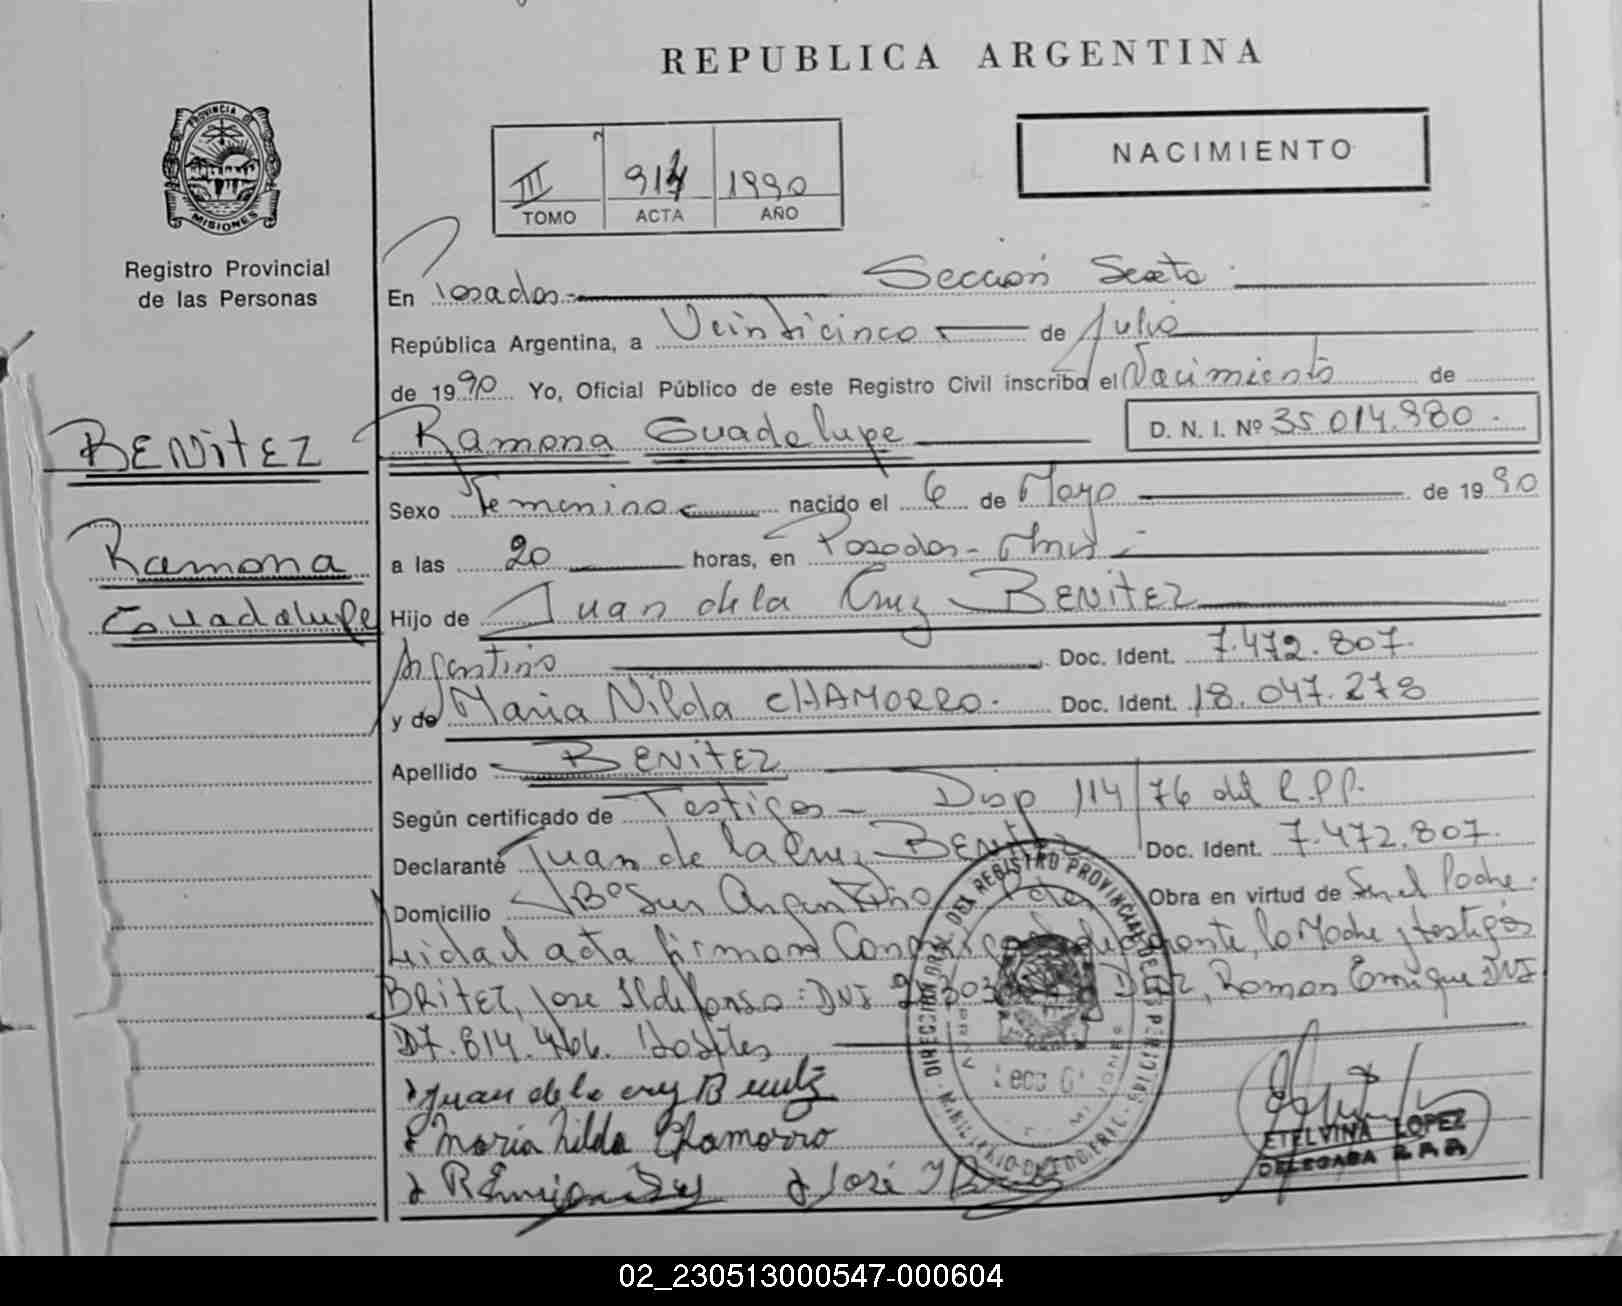 REPUBLICA ARGENTINA
PROVINCIA DE
MISIONES
Registro Provincial
de las Personas
III 914 1990
TOMO ACTA AÑO
NACIMIENTO
En Posadas.- Sección Sexta
República Argentina, a Veinticinco de Julio
de 1990 Yo, Oficial Público de este Registro Civil inscribo el Nacimiento de
BENITEZ
Ramona Guadelupe D. N. I. Nº 35.014.980.
Sexo Femenino nacido el 6 de Mayo de 1990
Ramona
Guadalupe
a las 20 horas, en Posadas - Mnes.
Hijo de Juan de la Cruz BENITEZ
Argentino Doc. Ident. 7.472.807.
y de Maria Nilda CHAMORRO. Doc. Ident. 18.047.278
Apellido BENITEZ
Según certificado de Testigos - Disp 114/76 del R.P.P.
Declarante Juan de la Cruz BENITEZ Doc. Ident. 7.472.807.
Domicilio Bº Sur Argentino Pdas Obra en virtud de Ser el Padre.
Leida el acta firman declarante, la Madre y testigos
BRITEZ, Jose Ildefonso: DNI Ramon Enrique DNI
17.814.466.
Juan de la cruz Benitez
Maria Nilda Chamorro
José
DIRECCION GRAL. DEL REGISTRO PROVINCIAL DE LAS PERSONAS
Secc 6ª
MISIONES
ETELVINA LOPEZ
DELEGADA
02_230513000547-000604